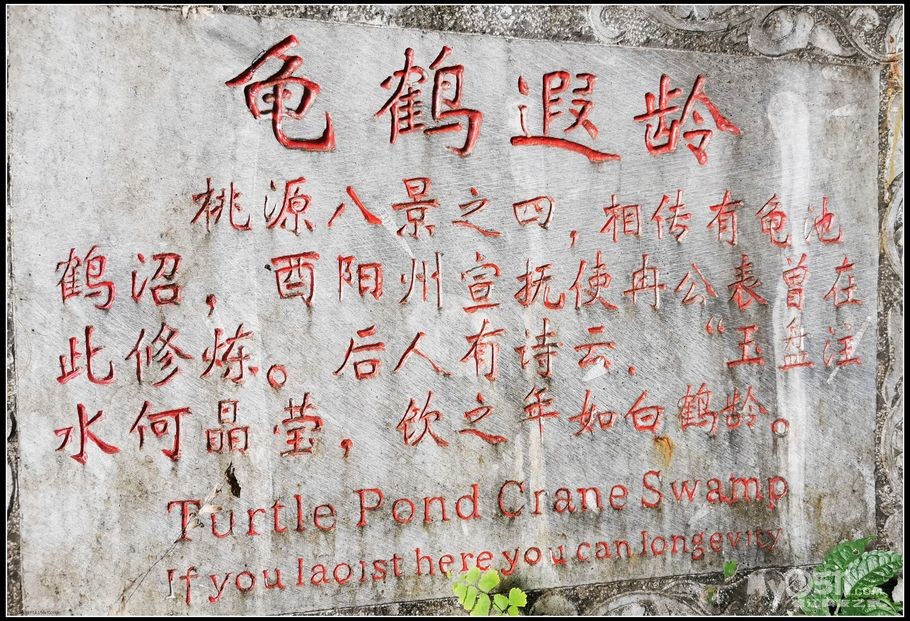 龟鹤遐龄
桃源八景之四,相传有龟池
鹤沼，酉阳州宣抚使冉公表曾在
此修炼。后人有诗云．“玉盘注
水何晶莹，饮之年如白鹤龄。
Turtle Pond Crane Swamp
If you laoist here you can longevity